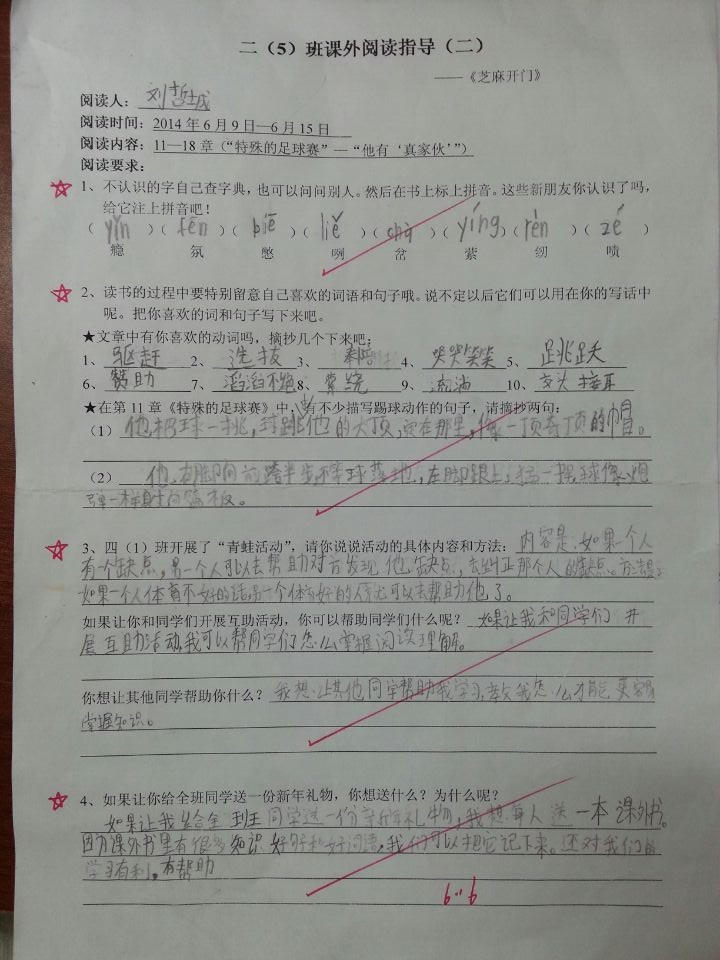 二（5）班课外阅读指导（二）
——《芝麻开门》
阅读人：刘哲城
阅读时间：2014年6月9日—6月15日
阅读内容：11—18章（“特殊的足球赛”—“他有‘真家伙’”）
阅读要求：
1、不认识的字自己查字典，也可以问问别人。然后在书上标上拼音。这些新朋友你认识了吗，
给它注上拼音吧！
（yǐn）（fēn）（biē）（liě）（chà）（yíng）（rèn）（zé）
瘾 氛 憋 咧 岔 萦 纫 啧
2、读书的过程中要特别留意自己喜欢的词语和句子哦。说不定以后它们可以用在你的写话中
呢。把你喜欢的词和句子写下来吧。
★文章中有你喜欢的动词吗，摘抄几个下来吧：
1、驱赶 2、选拔 3、 4、哭哭笑笑 5、跳跃
6、赞助 7、滔滔不绝 8、萦绕 9、 10、交头接耳
★在第11章《特殊的足球赛》中，有不少描写踢球动作的句子，请摘抄两句：
（1）他把球一挑，球跳他的大顶，定在那里，像一顶奇丁页的帽。
（2）他右脚向前跨半步，不等球落地，左脚跟上，猛一踢，球像炮
弹一样射向篮板。
3、四（1）班开展了“青蛙活动”，请你说说活动的具体内容和方法：内容是：如果一个人
有一个缺点，另一个人可以去帮助对方发现他缺点，去纠正那个人的缺点。方法是：
如果一个人体育不好的话，另一个体育好的人就可以去帮助他了。
如果让你和同学们开展互助活动，你可以帮助同学们什么呢？如果让我和同学们开
展互助活动，我可以帮同学们怎么掌握阅读理解。
你想让其他同学帮助你什么？我想让其他同学帮助我学习，教我怎么才能更容易
掌握知识。
4、如果让你给全班同学送一份新年礼物，你想送什么？为什么呢？
如果让我给全班王同学送一份新年礼物，我想每人送一本课外书。
因为课外书里有很多知识好句和好词语，我们可以把它记下来。还对我们的
学习有利，有帮助
6..9